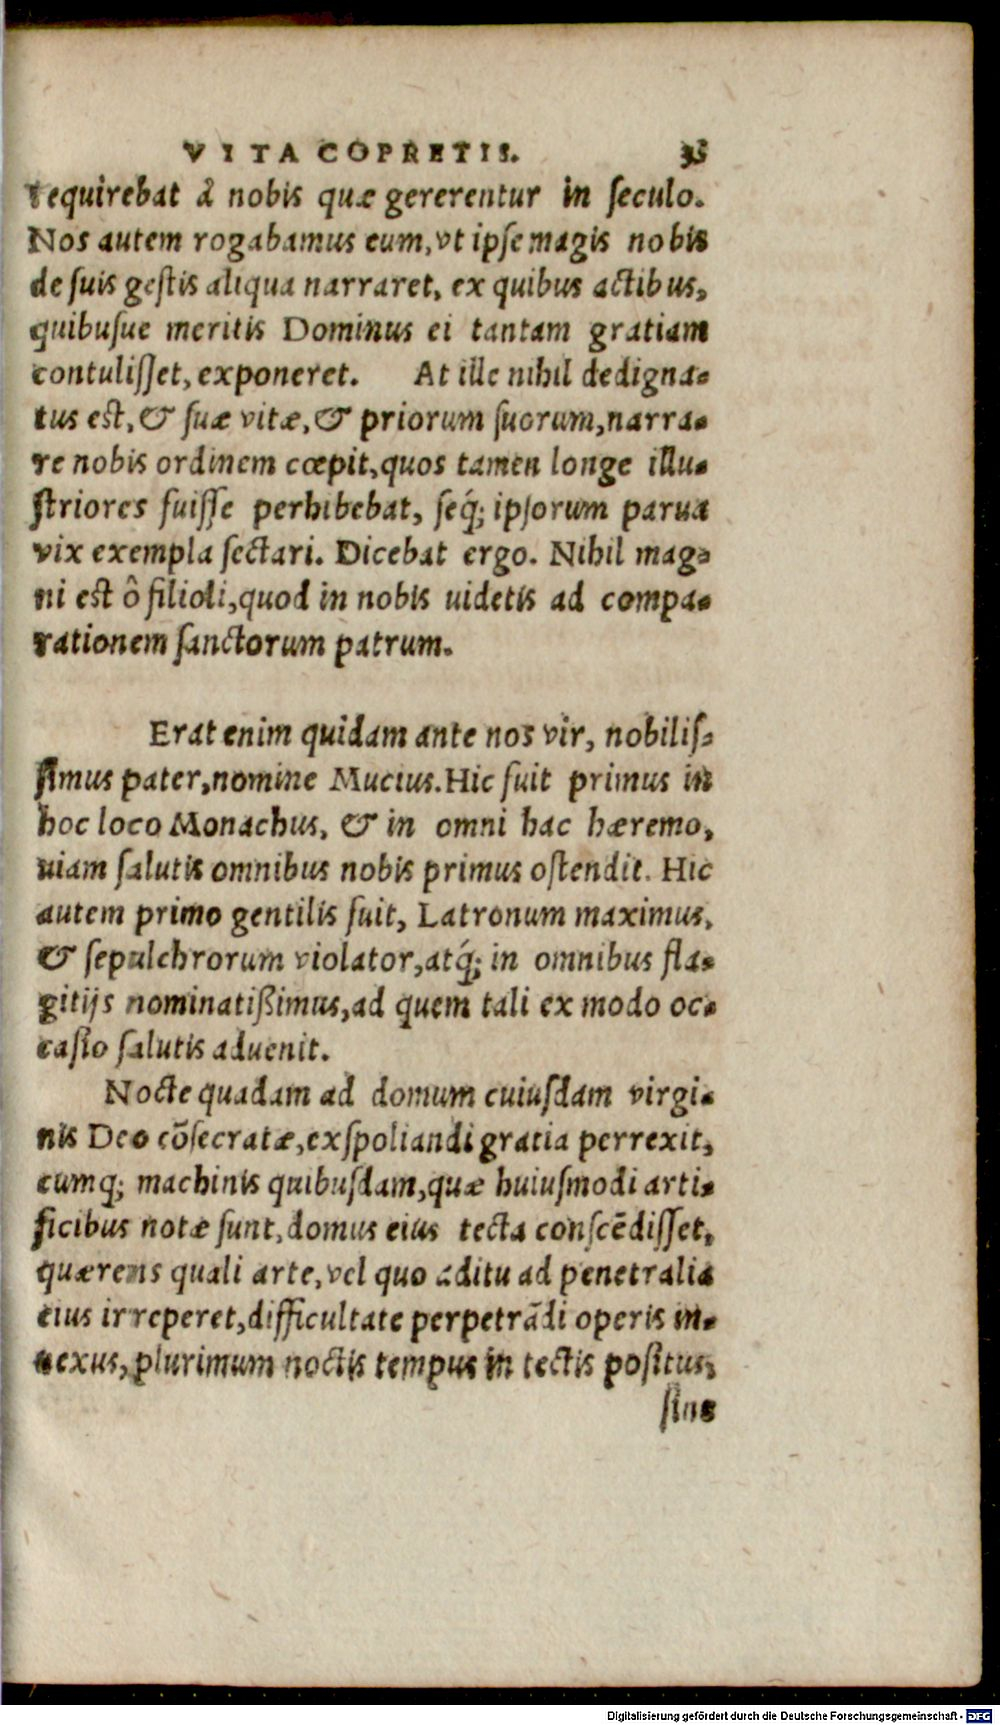 VITA COPRETIS. 35
requirebat à nobis quæ gererentur in seculo.
Nos autem rogabamus eum, vt ipse magis nobis
de suis gestis aliqua narraret, ex quibus actibus,
quibusue meritis Dominus ei tantam gratiam
contulisset, exponeret. At ille nihil dedigna-
tus est, & suæ vitæ, & priorum suorum, narra-
re nobis ordinem cœpit, quos tamen longe illu-
striores fuisse perhibebat, seq́; ipsorum parua
vix exempla sectari. Dicebat ergo. Nihil mag-
ni est ô filioli, quod in nobis uidetis ad compa-
rationem sanctorum patrum.
Erat enim quidam ante nos vir, nobilis-
simus pater, nomine Mucius. Hic fuit primus in
hoc loco Monachus, & in omni hac hæremo,
uiam salutis omnibus nobis primus ostendit. Hic
autem primo gentilis fuit, Latronum maximus,
& sepulchrorum violator, atq́; in omnibus fla-
gitijs nominatißimus, ad quem tali ex modo oc-
casio salutis aduenit.
Nocte quadam ad domum cuiusdam virgi-
nis Deo cõsecratæ, exspoliandi gratia perrexit,
cumq; machinis quibusdam, quæ huiusmodi arti-
ficibus notæ sunt, domus eius tecta conscẽdisset,
quærens quali arte, vel quo aditu ad penetralia
eius irreperet, difficultate perpetrãdi operis in-
nexus, plurimum noctis tempus in tectis positus,
sine
Digitalisierung gefördert durch die Deutsche Forschungsgemeinschaft - DFG